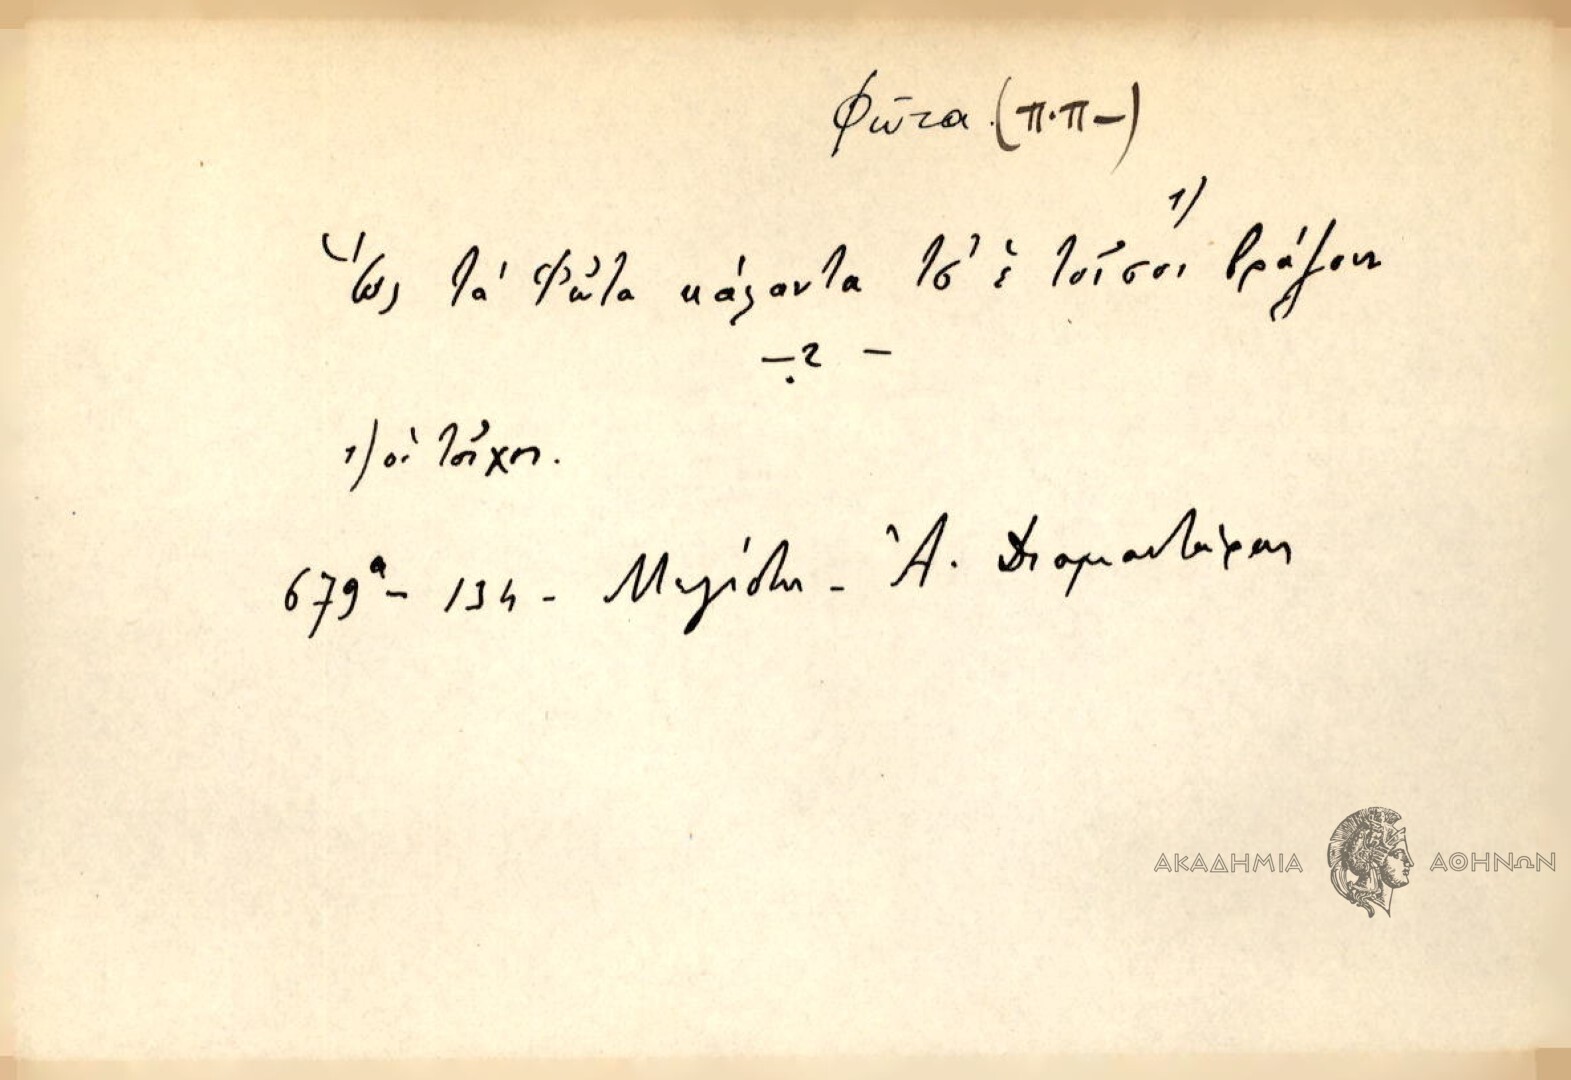 Φῶτα (π.π-)
Ὥς τά Φῶτα κάλαντα τσ' ἑ τοῖσοι βράζουν
1)
1) οἱ τοῖχοι.
679α - 134 - Μεγίστη - Ἀ. Διαμαντάρας
ΑΚΑΔΗΜΙΑ ΑΘΗΝΩΝ